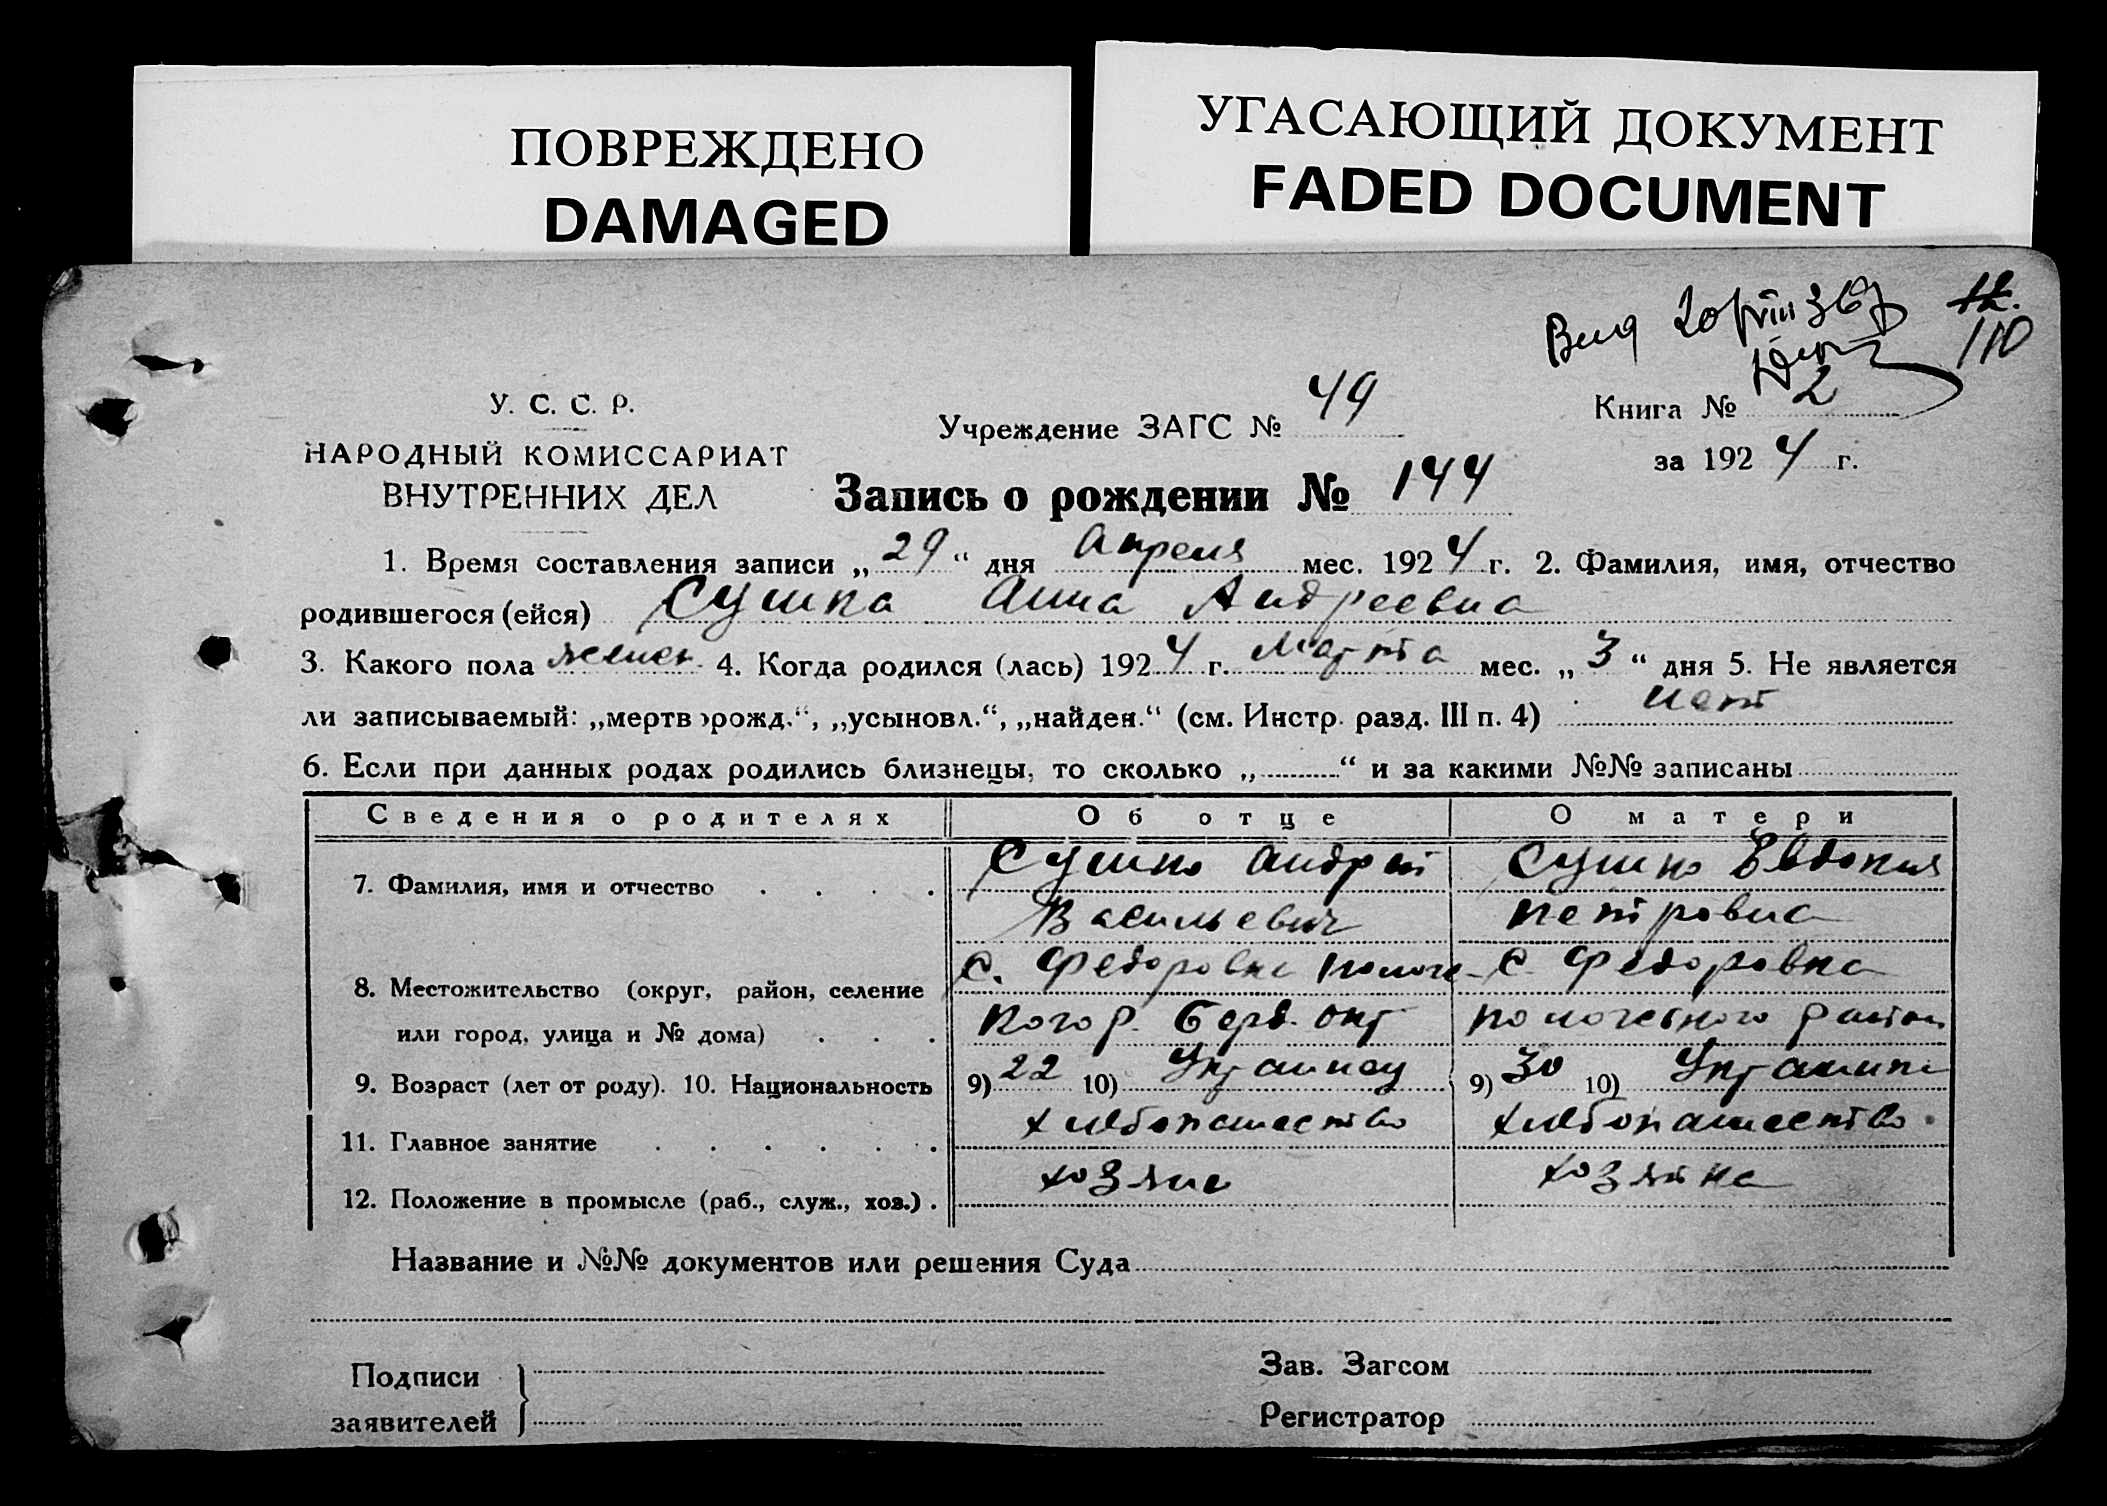 ПОВРЕЖДЕНО
DAMAGED
УГАСАЮЩИЙ ДОКУМЕНТ
FADED DOCUMENT
12.
110
У. С. С. Р.
НАРОДНЫЙ КОМИССАРИАТ
ВНУТРЕННИХ ДЕЛ
Учреждение ЗАГС № 49
Книга № 2
за 1924 г.
Запись о рождении № 144
1. Время составления записи „29“ дня Апреля мес. 1924 г. 2. Фамилия, имя, отчество
родившегося (ейся) Сушко Анна Андреевна
3. Какого пола женск. 4. Когда родился (лась) 1924 г. Марта мес. „3“ дня 5. Не является
ли записываемый: „мертворожд.“, „усыновл.“, „найден.“ (см. Инстр. разд. III п. 4) нет
6. Если при данных родах родились близнецы, то сколько „ “ и за какими №№ записаны
Сведения о родителях Об отце О матери
7. Фамилия, имя и отчество Сушко Андрей Сушко Евдокия
Васильевич Петровна
с. Федоровка Пологс с. Федоровка
8. Местожительство (округ, район, селение
или город, улица и № дома) кого р. Берд. окр Пологского район
9. Возраст (лет от роду). 10. Национальность 9) 22 10) Украинец 9) 30 10) Украинка
11. Главное занятие хлебопашество хлебопашество
12. Положение в промысле (раб., служ., хоз.) хозяин хозяйка
Название и №№ документов или решения Суда
Подписи
заявителей
Зав. Загсом
Регистратор